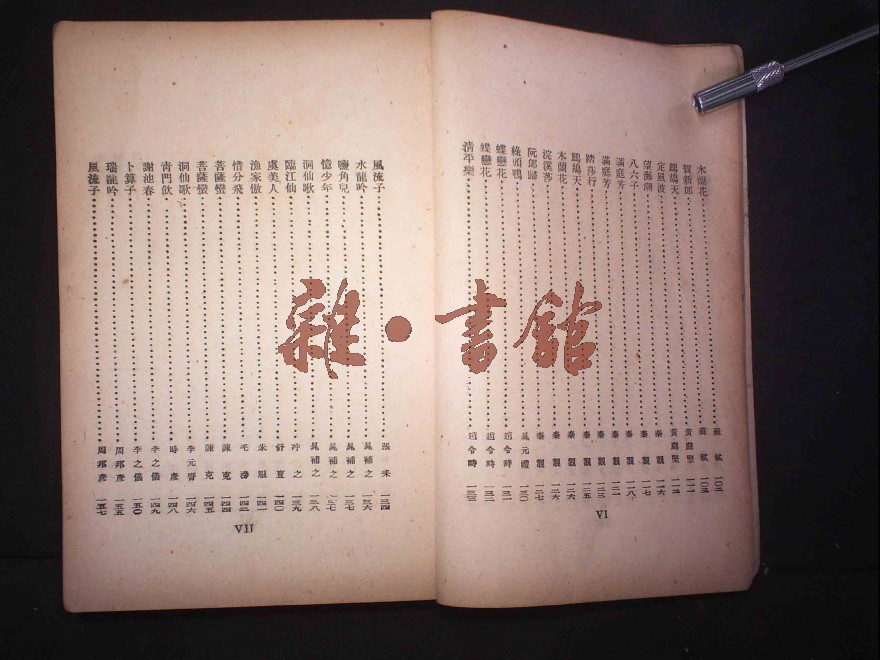 木蘭花 蘇軾 一〇三
賀新郎 黃庭堅 一一一
鷓鴣天 黃庭堅 一一三
定風波 秦觀
望海潮 秦觀 一一七
八六子 秦觀 一一八
滿庭芳 秦觀
滿庭芳 秦觀
踏莎行 秦觀
鷓鴣天 秦觀 一二六
木蘭花 秦觀 一二六
浣溪莎 秦觀 一二七
阮郎歸 晁元禮 一三〇
綠頭鴨
蝶戀花 趙令畤
蝶戀花 趙令畤
清平樂 趙令畤
VI
風流子 張耒 一三四
水龍吟 晁補之 一三六
鹽角兒 晁補之 一三七
憶少年 晁補之 一三七
洞仙歌 晁補之 一三八
臨江仙 冲之 一三九
虞美人 舒亶 一四〇
漁家傲 朱服 一四一
惜分飛 毛滂 一四二
菩薩蠻 陳克 一四四
菩薩蠻 陳克 一四五
洞仙歌 李元膺 一四六
青門飲 時彥 一四八
謝池春 李之儀 一四九
卜算子 李之儀 一五〇
瑞龍吟 周邦彥 一五五
風流子 周邦彥 一五七
VII
雜·書館